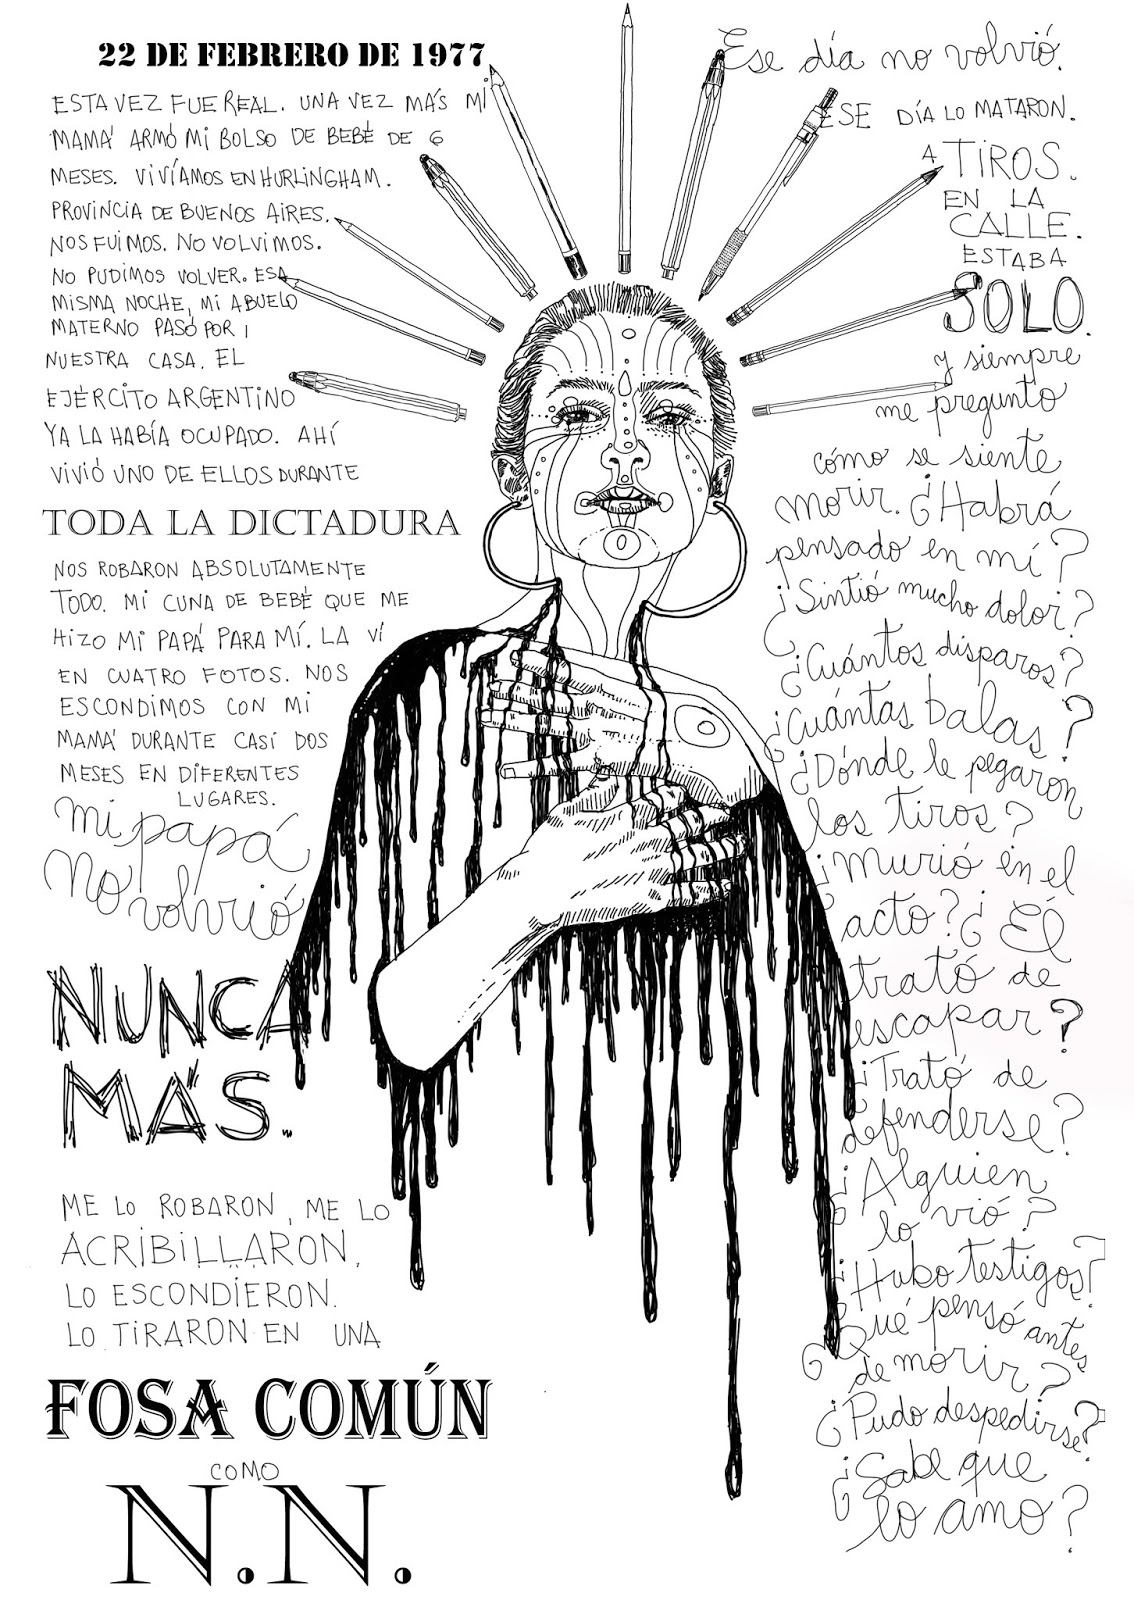 22 DE FEBRERO DE 1977
ESTA VEZ FUE REAL. UNA VEZ MÁS MI
MAMÁ ARMÓ MI BOLSO DE BEBÉ DE 6
MESES. VIVÍAMOS EN HURLINGHAM.
PROVINCIA DE BUENOS AIRES.
NOS FUIMOS. NO VOLVIMOS.
NO PUDIMOS VOLVER. ESA
MISMA NOCHE, MI ABUELO
MATERNO PASÓ POR
NUESTRA CASA. EL
EJÉRCITO ARGENTINO
YA LA HABÍA OCUPADO. AHÍ
VIVIÓ UNO DE ELLOS DURANTE
TODA LA DICTADURA
NOS ROBARON ABSOLUTAMENTE
TODO. MI CUNA DE BEBÉ QUE ME
HIZO MI PAPÁ PARA MÍ. LA VÍ
EN CUATRO FOTOS. NOS
ESCONDIMOS CON MI
MAMÁ DURANTE CASI DOS
MESES EN DIFERENTES
LUGARES.
mi papá
No volvió
NUNCA
MÁS.
ME LO ROBARON, ME LO
ACRIBILLARON,
LO ESCONDIERON.
LO TIRARON EN UNA
FOSA COMÚN
COMO
N.N.
Ese día no volvió.
ESE DÍA LO MATARON.
A TIROS.
EN LA
CALLE.
ESTABA
SOLO.
y siempre
me pregunto
cómo se siente
morir. ¿Habrá
pensado en mí?
¿Sintió mucho dolor?
¿Cuántos disparos?
¿Cuántas balas?
¿Dónde le pegaron
los tiros?
¿Murió en el
acto? ¿Él
trató de
escapar?
¿Trató de
defenderse?
¿Alguien
lo vió?
¿Hubo testigos?
¿Qué pensó antes
de morir?
¿Pudo despedirse?
¿Sabe que
lo amo?